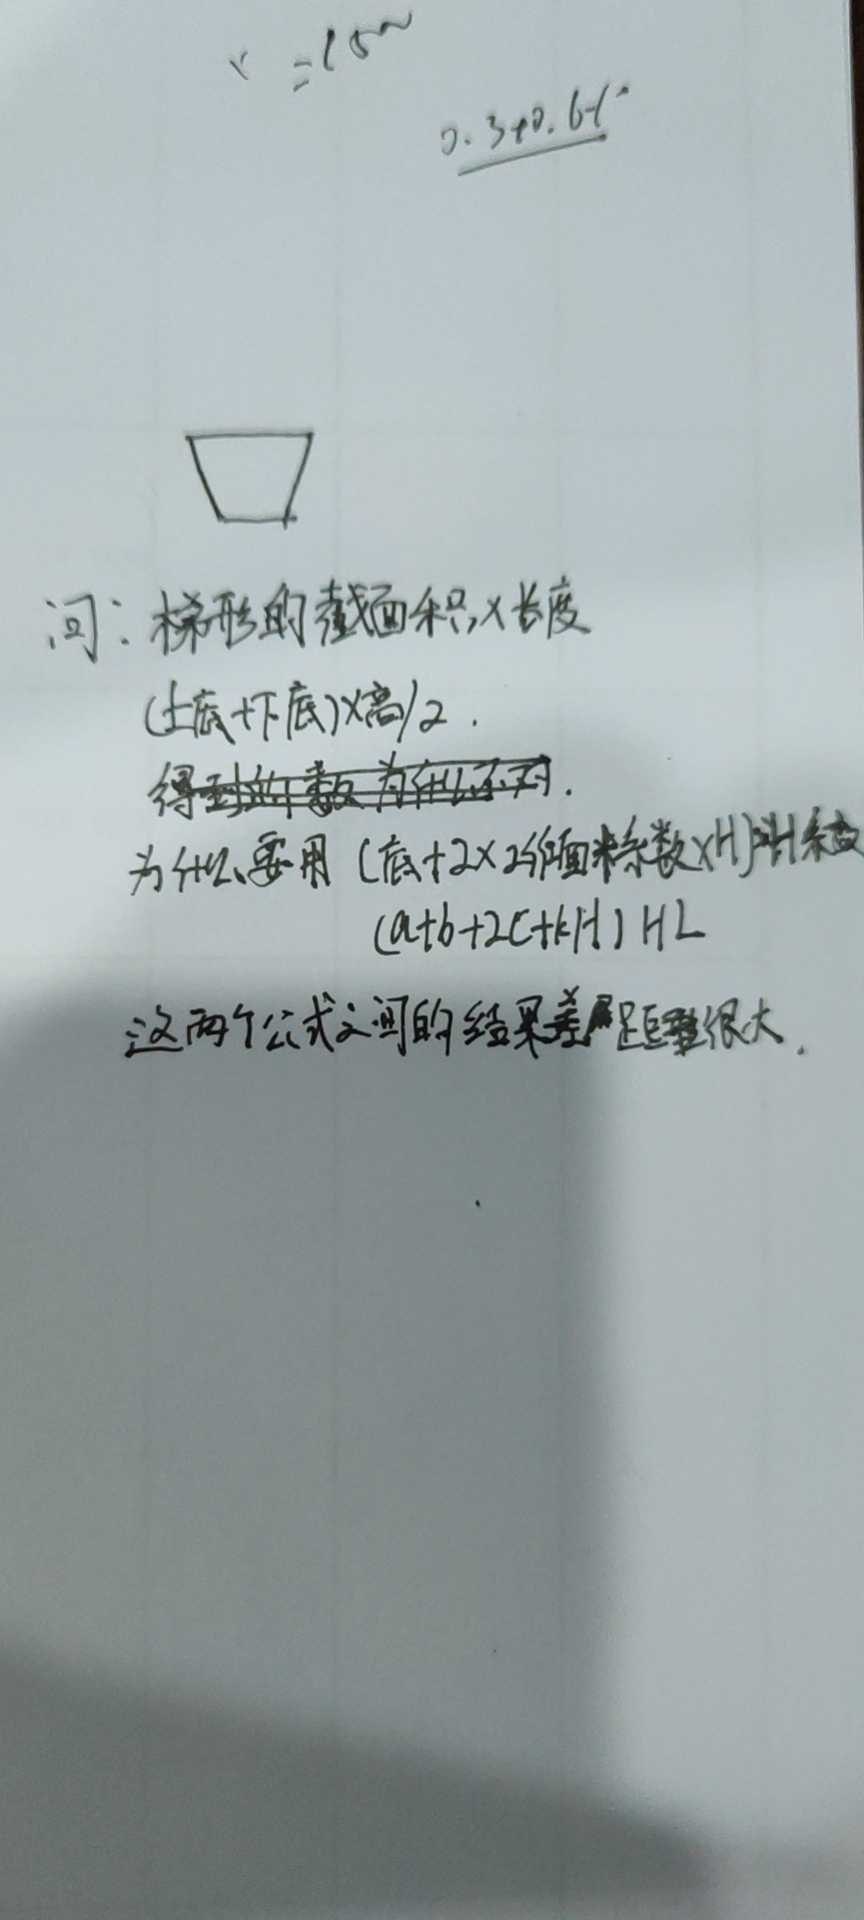 =15m
0.3+0.6+
问：梯形的截面积×长度
(上底+下底)×高/2.
得到的数为什么不对.
为什么要用(底+2×工作面 系数×H)×H×
(a+b+2C+kH)HL
这两个公式之间的结果差距很大.